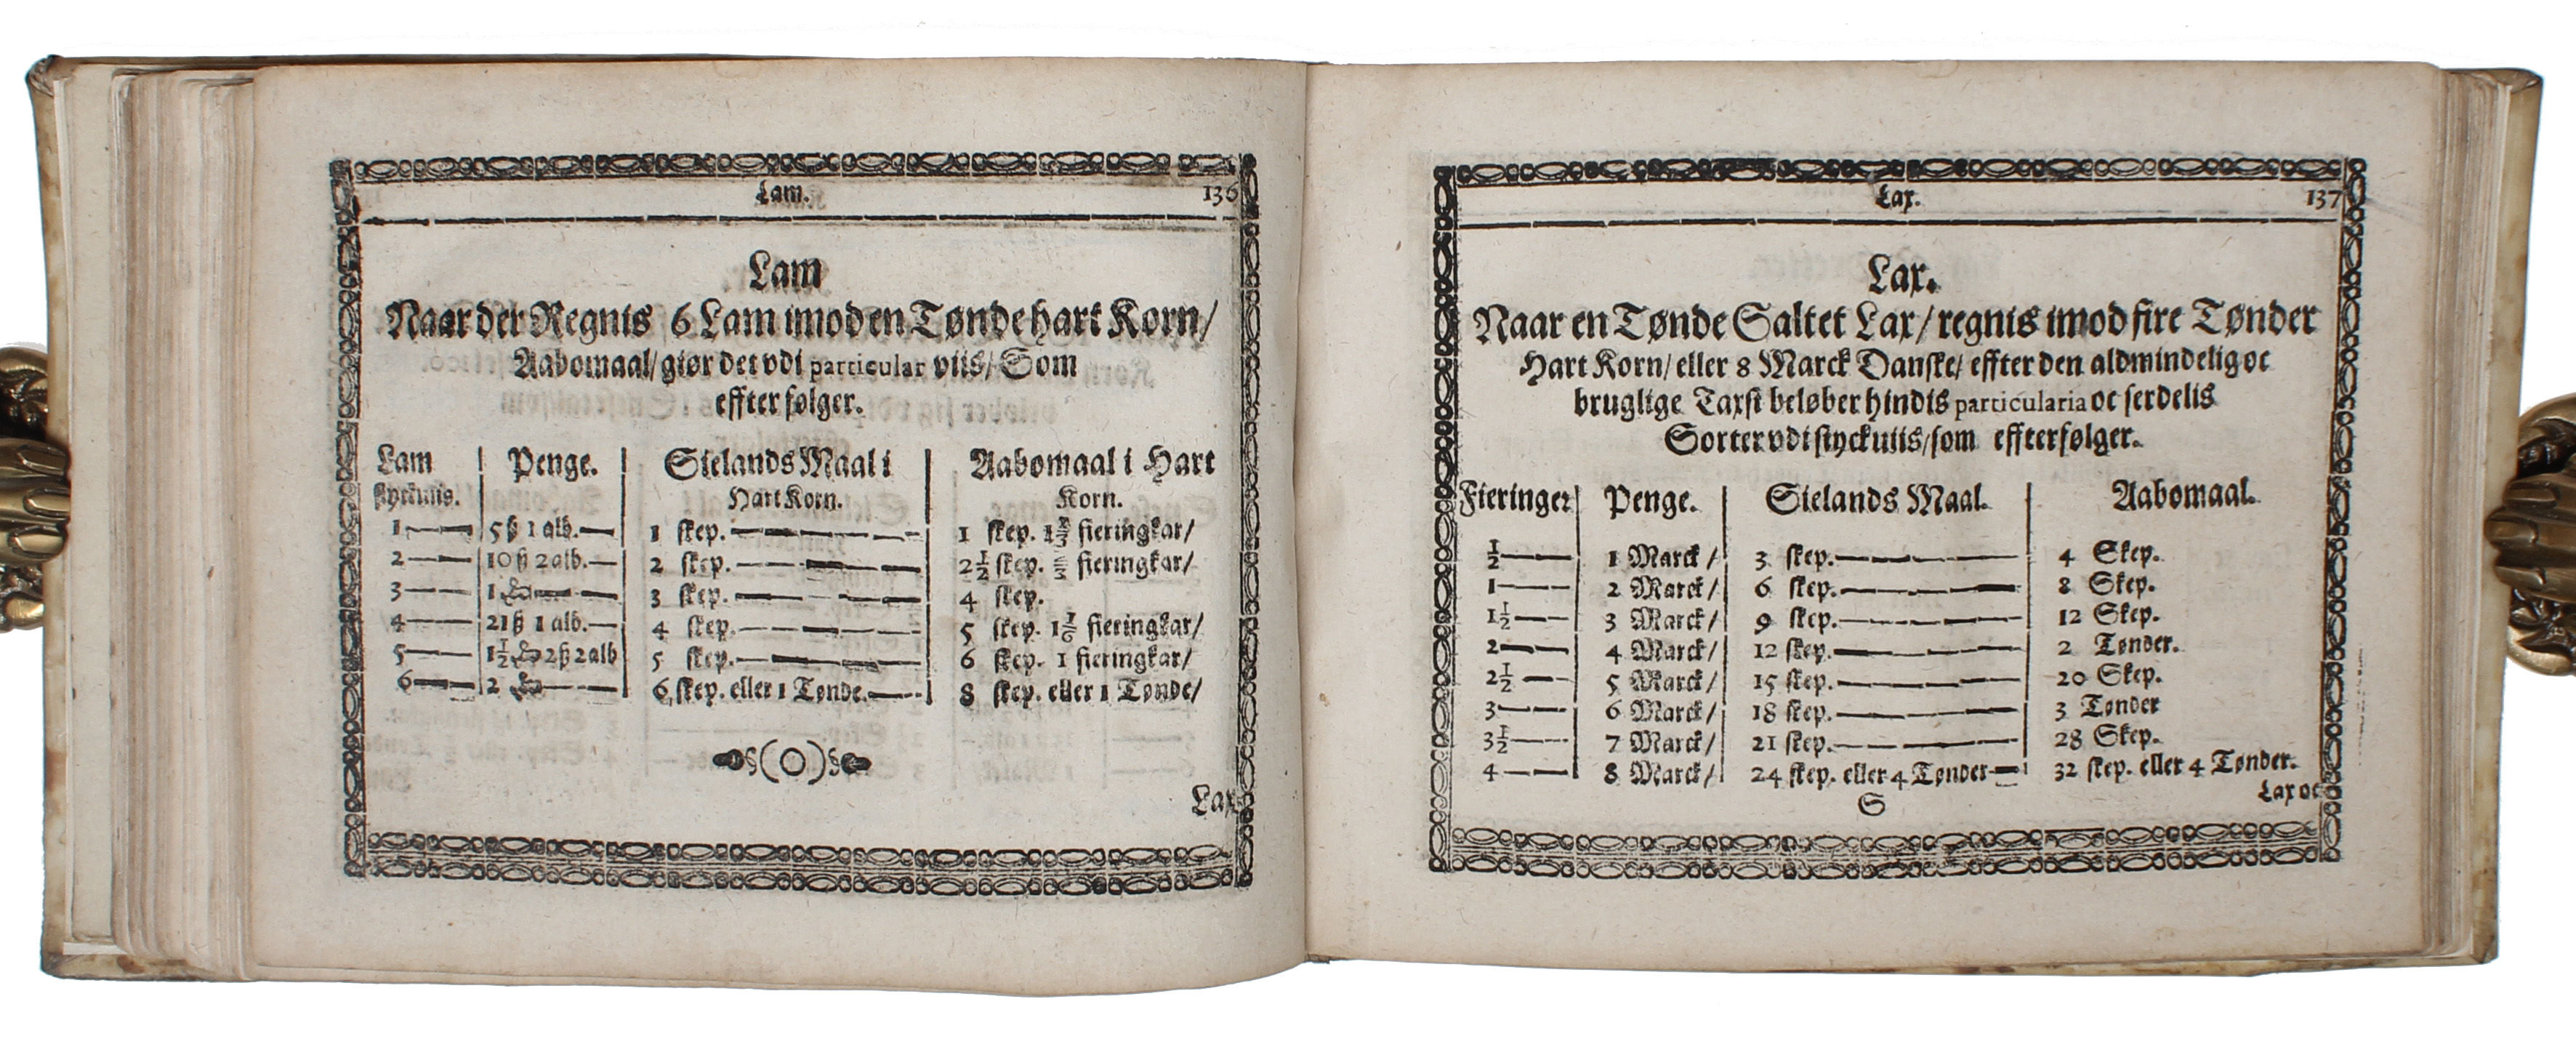 Lam.
136
Lam
Naar der Regnis 6 Lam imod en Tønde hart Korn/
Aabomaal/ giør det vdi particular viis/ Som
effter følger.
Lam | Penge. | Sielands Maal i | Aabomaal i Hart
styckuiis. Hart Korn. Korn.
1 5 ß 1 alb. 1 skep. 1 skep. 1⅓ fieringkar/
2 10 ß 2 alb. 2 skep. 2½ skep. ⅔ fieringkar/
3 1 3 skep. 4 skep.
4 21 ß 1 alb. 4 skep. 5 skep. 1⅙ fieringkar/
5 1½ 2 ß 2 alb 5 skep. 6 skep. 1 fieringkar/
6 2 6 skep. eller 1 Tønde. 8 skep. eller 1 Tønde/
§(O)§
Lax
Lax.
137
Lax.
Naar en Tønde Saltet Lax/ regnis imod fire Tønder
Hart Korn/ eller 8 Marck Danske/ effter den aldmindelig oc
bruglige Taxst beløber hindis particularia oc serdelis
Sorter vdi styckuiis/ som effterfølger.
Fieringer | Penge. | Sielands Maal. | Aabomaal.
½ 1 Marck/ 3 skep. 4 Skep.
1 2 Marck/ 6 skep. 8 Skep.
1½ 3 Marck/ 9 skep. 12 Skep.
2 4 Marck/ 12 skep. 2 Tønder.
2½ 5 Marck/ 15 skep. 20 Skep.
3 6 Marck/ 18 skep. 3 Tønder
3½ 7 Marck/ 21 skep. 28 Skep.
4 8 Marck/ 24 skep. eller 4 Tønder 32 skep. eller 4 Tønder.
S
Lax oc